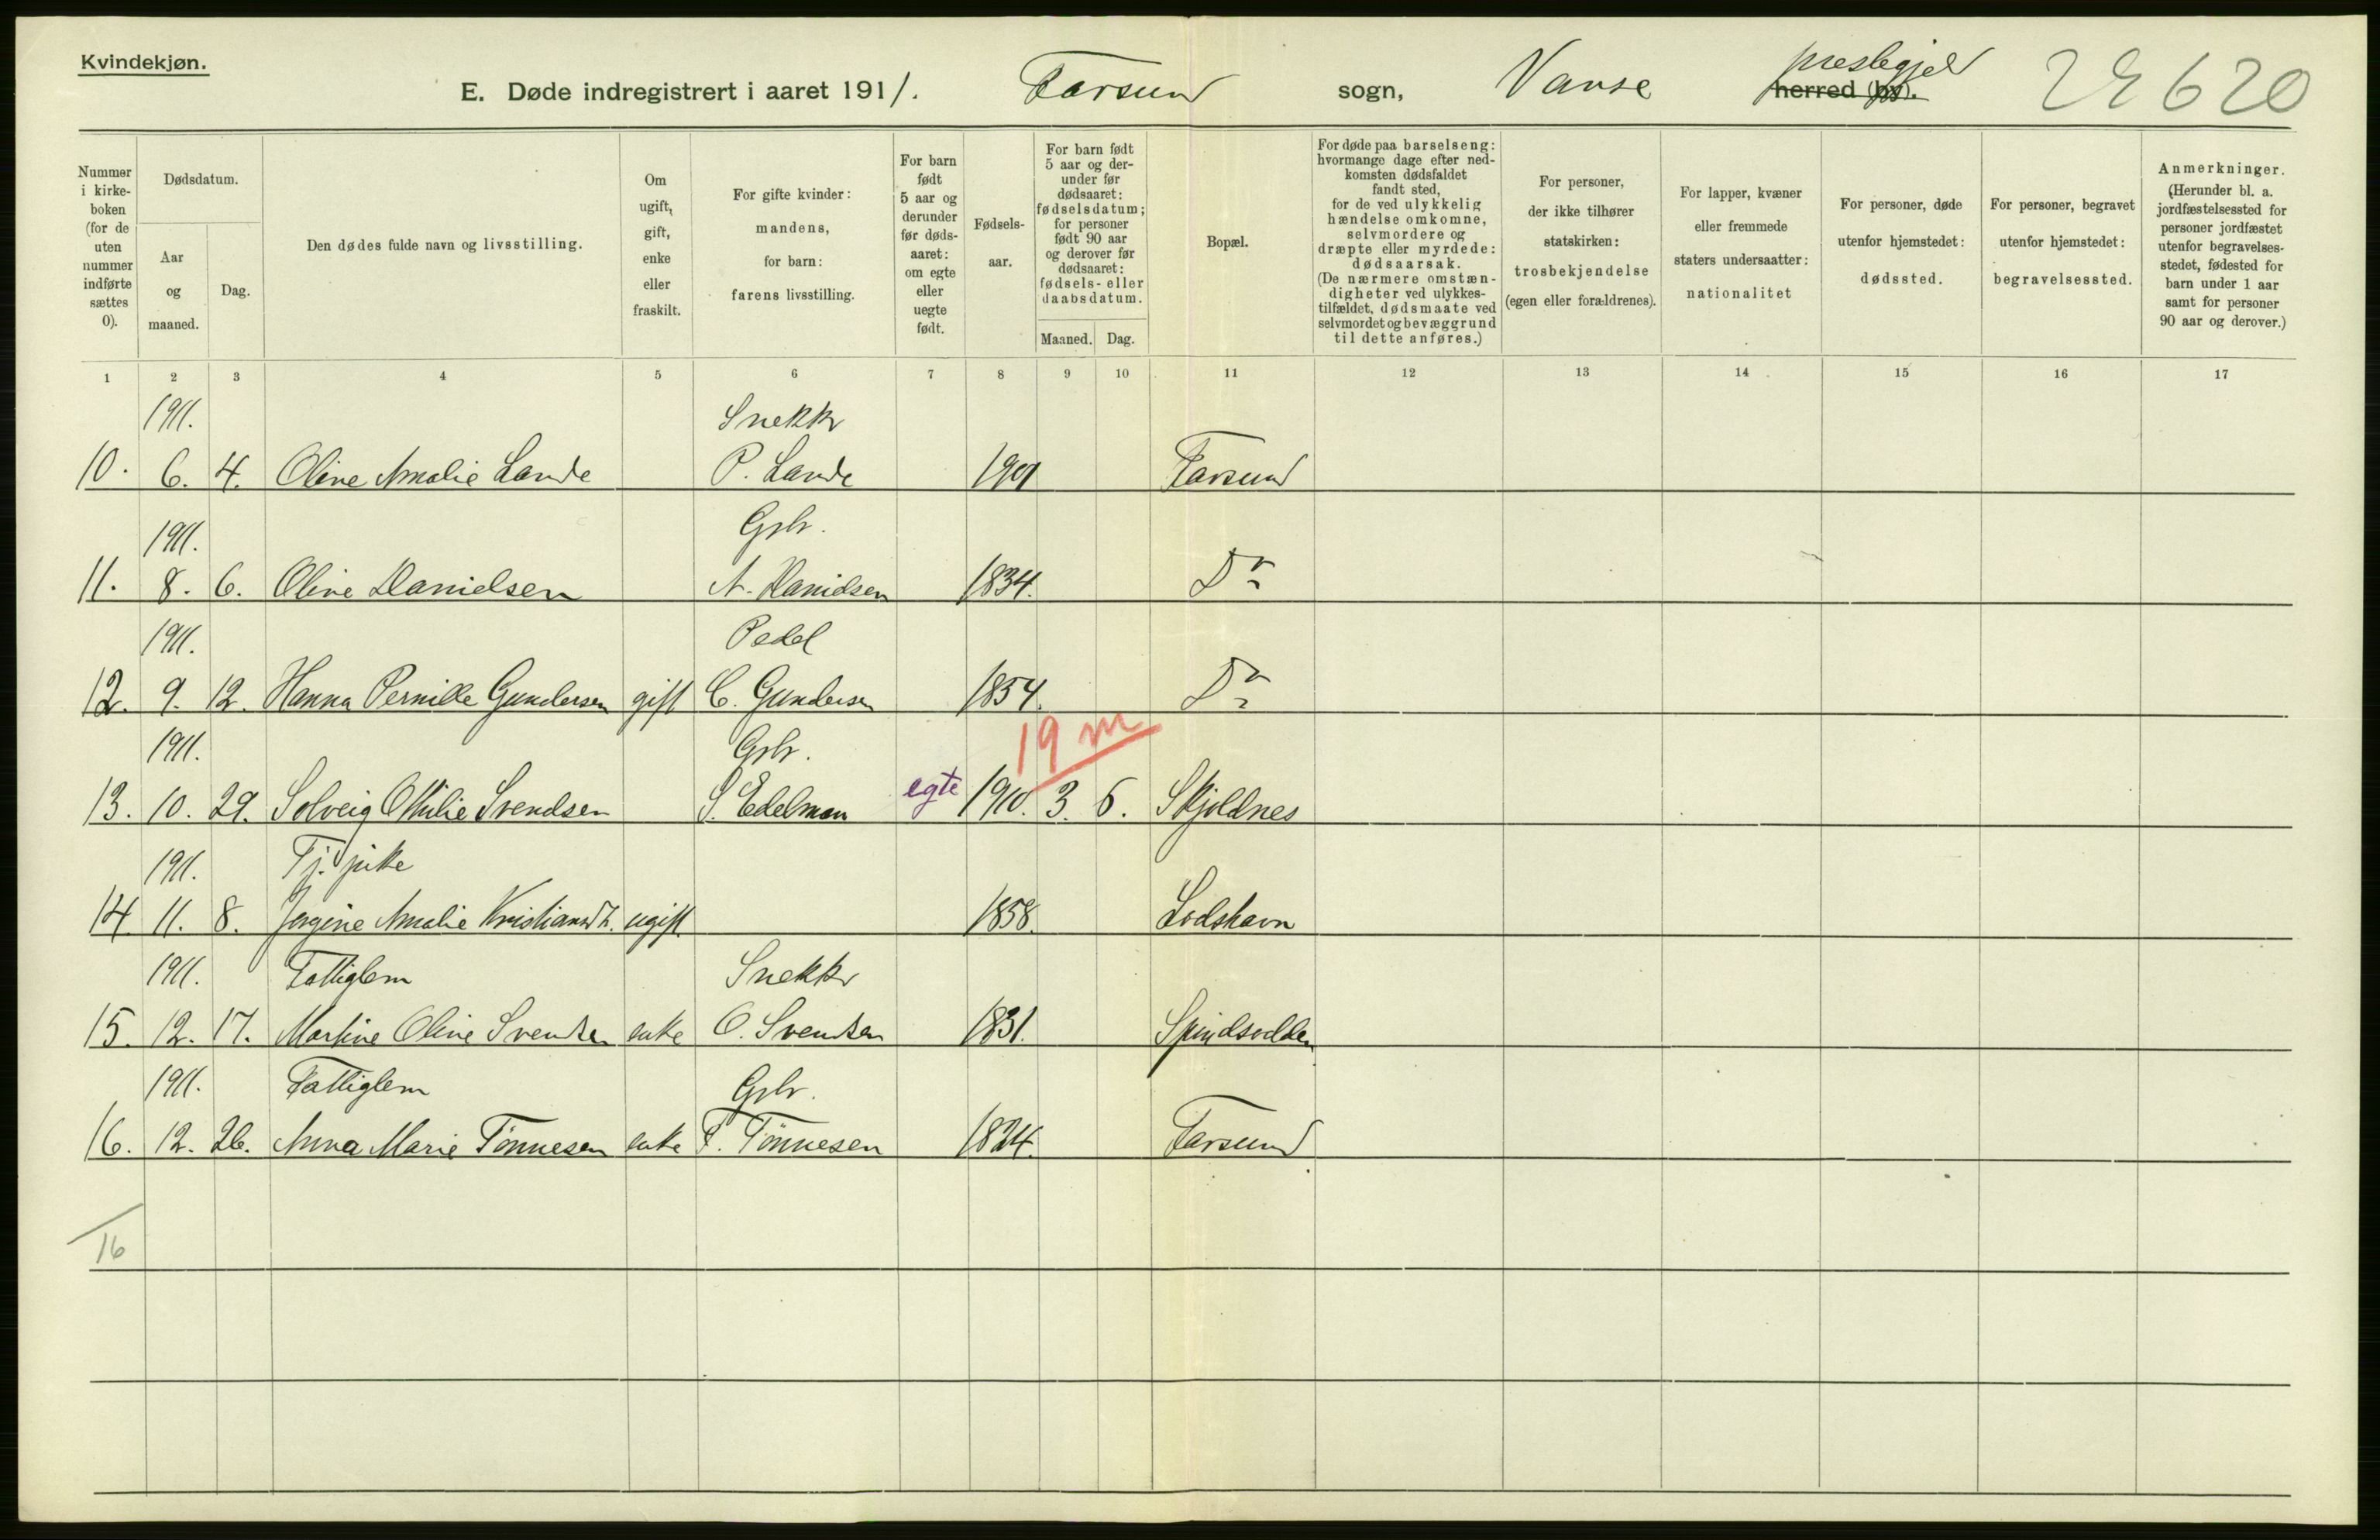 Kvindekjøn.
E. Døde indregistrert i aaret 1911. Farsund sogn, Vanse herred (by). prestegjel
620
Nummer i kirke-boken (for de uten nummer indførte sættes 0).
Dødsdatum.
Aar og maaned.
Dag.
Den dødes fulde navn og livsstilling.
Om ugift, gift, enke eller fraskilt.
For gifte kvinder: mandens, for barn: farens livsstilling.
For barn født 5 aar og derunder før døds-aaret: om egte eller uegte født.
Fødsels-aar.
For barn født 5 aar og der-under før dødsaaret: fødselsdatum; for personer født 90 aar og derover før dødsaaret: fødsels- eller daabsdatum.
Maaned. Dag.
Bopæl.
For døde paa barselseng: hvormange dage efter ned-komsten dødsfaldet fandt sted, for de ved ulykkelig hændelse omkomne, selvmordere og dræpte eller myrdede: dødsaarsak. (De nærmere omstæn-digheter ved ulykkes-tilfældet, dødsmaate ved selvmordet og bevæggrund til dette anføres.)
For personer, der ikke tilhører statskirken: trosbekjendelse (egen eller forældrenes).
For lapper, kvæner eller fremmede staters undersaatter: nationalitet
For personer, døde utenfor hjemstedet: dødssted.
For personer, begravet utenfor hjemstedet: begravelsessted.
Anmerkninger. (Herunder bl. a. jordfæstelsessted for personer jordfæstet utenfor begravelses-stedet, fødested for barn under 1 aar samt for personer 90 aar og derover.)
1 2 3 4 5 6 7 8 9 10 11 12 13 14 15 16 17
1911. Snekkr
10. 6. 4. Oline Amalie Lande P. Lande 1901 Farsund
1911. Gsbr.
11. 8. 6. Oline Danielsen A. Danielsen 1834. Do
1911. Pedel
12. 9. 12. Hanna Pernille Gundersen gift C. Gundersen 1854. Do
19 m
1911. Gsbr.
13. 10. 29. Solveig Othilie Svendsen S. Edelman egte 1910. 3. 6. Skjoldnes
1911. Tj. pike
14 11. 8. Jørgine Amalie Kristiansdt. ugift 1858. Lodshavn
1911. Fattiglem Snekkr
15. 12. 17. Martine Oline Svendsen enke O. Svendsen 1831. Spindsodden
1911. Fattiglem Gsbr.
16. 12. 26. Anna Marie Tönnesen enke T. Tönnesen 1824. Farsund
16